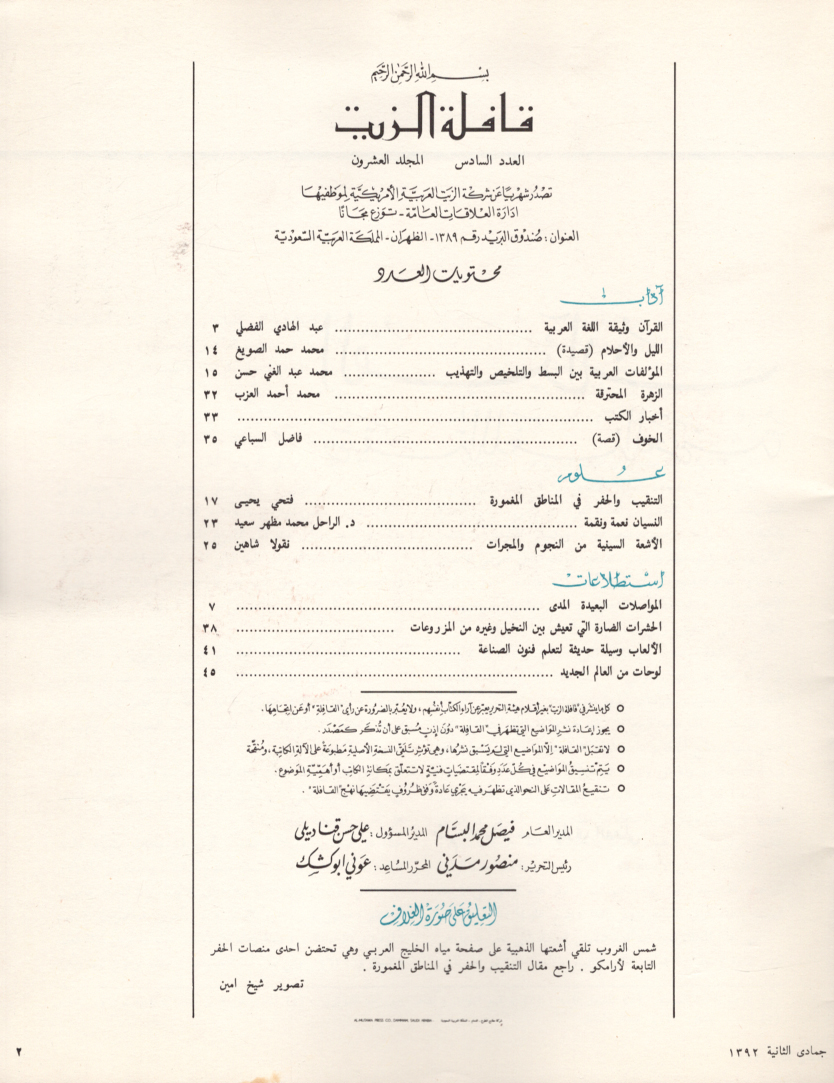 بسم الله الرحمن الرحيم
قافلة الزيت
العدد السادس المجلد العشرون
تصدر شهريا عن شركة الزيت العربية الأمريكية لموظفيها
ادارة العلاقات العامة - توزع مجانا
العنوان : صندوق البريد رقم ١٣٨٩ - الظهران - المملكة العربية السعودية
محتويات العدد
آداب
القرآن وثيقة اللغة العربية ........ عبد الهادي الفضلي ٣
الليل والأحلام (قصيدة) ........ محمد حمد الصويغ ١٤
المؤلفات العربية بين البسط والتلخيص والتهذيب ........ محمد عبد الغني حسن ١٥
الزهرة المحترقة ........ محمد أحمد العزب ٣٢
أخبار الكتب ........ ٣٣
الخوف (قصة) ........ فاضل السباعي ٣٥
علوم
التنقيب والحفر في المناطق المغمورة ........ فتحي يحيى ١٧
النسيان نعمة ونقمة ........ د. الراحل محمد مظهر سعيد ٢٣
الأشعة السينية من النجوم والمجرات ........ نقولا شاهين ٢٥
استطلاعات
المواصلات البعيدة المدى ........ ٧
الحشرات الضارة التي تعيش بين النخيل وغيره من المزروعات ........ ٣٨
الألعاب وسيلة حديثة لتعلم فنون الصناعة ........ ٤١
لوحات من العالم الجديد ........ ٤٥
كل ما ينشر في "قافلة الزيت" بغير أقلام هيئة التحرير يعبر عن آراء الكتاب أنفسهم ، ولا يعبر بالضرورة عن رأي "القافلة" أو عن اتجاهها .
يجوز إعادة نشر المواضيع التي تظهر في "القافلة" دون إذن مسبق على أن تذكر كمصدر .
لا تقبل "القافلة" إلا المواضيع التي لم يسبق نشرها ، وهي تؤثر تلقي النسخة الأصلية مطبوعة على الآلة الكاتبة ، ومنقحة
يتم تنسيق المواضيع في كل عدد وفقا لمقتضيات فنية لا تتعلق بمكانة الكاتب أو أهمية الموضوع .
تنقيح المقالات على النحو الذي تظهر فيه يجري عادة وفق ظروف يقتضيها نهج "القافلة" .
المدير العام : فيصل محمد البسام المدير المسؤول : علي حسن قناديلي
رئيس التحرير : منصور مدني المحرر المساعد : عوني ابو كشك
التعليق على صورة الغلاف
شمس الغروب تلقي أشعتها الذهبية على صفحة مياه الخليج العربي وهي تحتضن احدى منصات الحفر
التابعة لأرامكو . راجع مقال التنقيب والحفر في المناطق المغمورة .
تصوير شيخ امين
جمادى الثانية ١٣٩٢
٢